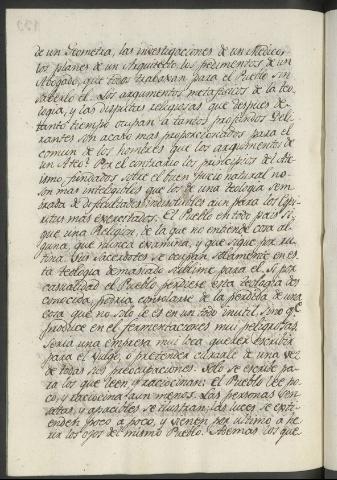 de un Geometra, las investigaciones de un Medico,
los planes de un Arquitecto, los pedimentos de un
Abogado, que todos trabaxan para el Pueblo sin
saberlo el. Los argumentos metafisicos de la teo-
logia, y las disputas religiosas que despues de
tanto tiempo ocupan a tantos profundos Deli-
rantes son acaso mas proporcionados para el
comun de los hombres que los argumentos de
un Ateo? Por el contrario los principios del ate-
ismo, fundados sobre el buen juicio natural no
son mas inteligibles que los de una teologia sem-
brada de dificultades indisolubles aun para los Espi-
ritus mas exercitados. El Pueblo en todo pais si-
gue una Religion, de la que no entiende cosa al-
guna, que nunca examina, y que sigue por ru-
tina. Sus Sacerdotes se ocupan solamente en es-
ta teologia demasiado sublime para el. Si por
casualidad el Pueblo perdiese esta teologia des-
conocida, podria consolarse de la perdida de una
cosa que no solo le es en un todo inutil, sino qe
produce en el fermentaciones mui peligrosas.
Seria una empresa mui loca querer escribir
para el Vulgo, o pretender curarle de una vez
de todas sus preocupaciones. Solo se escribe pa-
ra los que leen, y raciocinan: el Pueblo lee po-
co, y raciocina aun menos. Las personas sen-
satas, y apacibles se ilustran; las luces se exti-
enden poco a poco, y vienen por ultimo a he-
rir los ojos del mismo Pueblo. Ademas los que